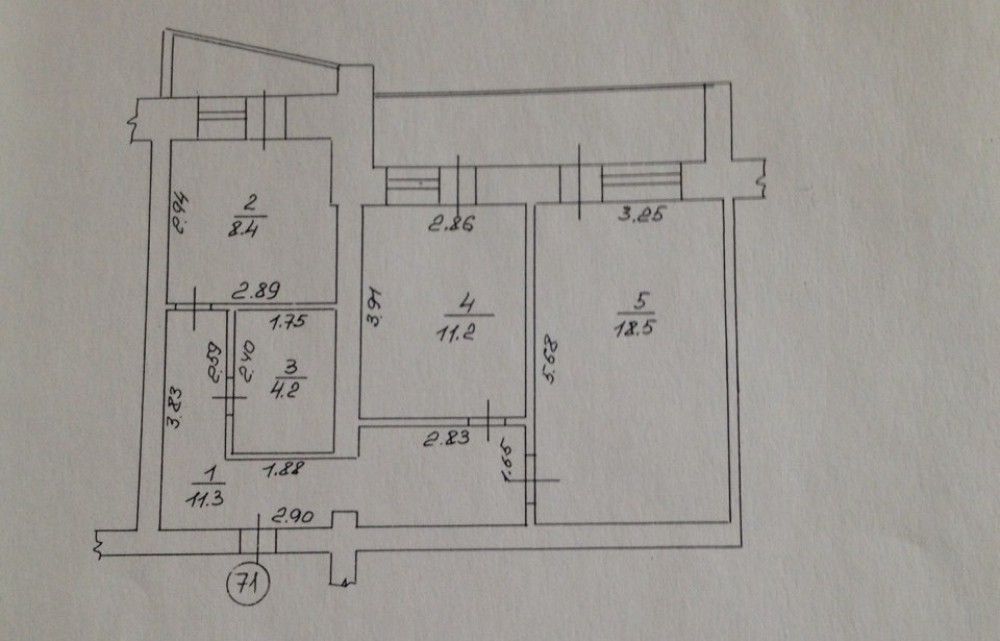 2.94
2
8.4
2.89
2.86
3.25
3.91
4
11.2
5
18.5
5.68
1.75
2.59
2.40
3
4.2
3.83
2.83
1.65
1.88
1
11.3
2.90
71